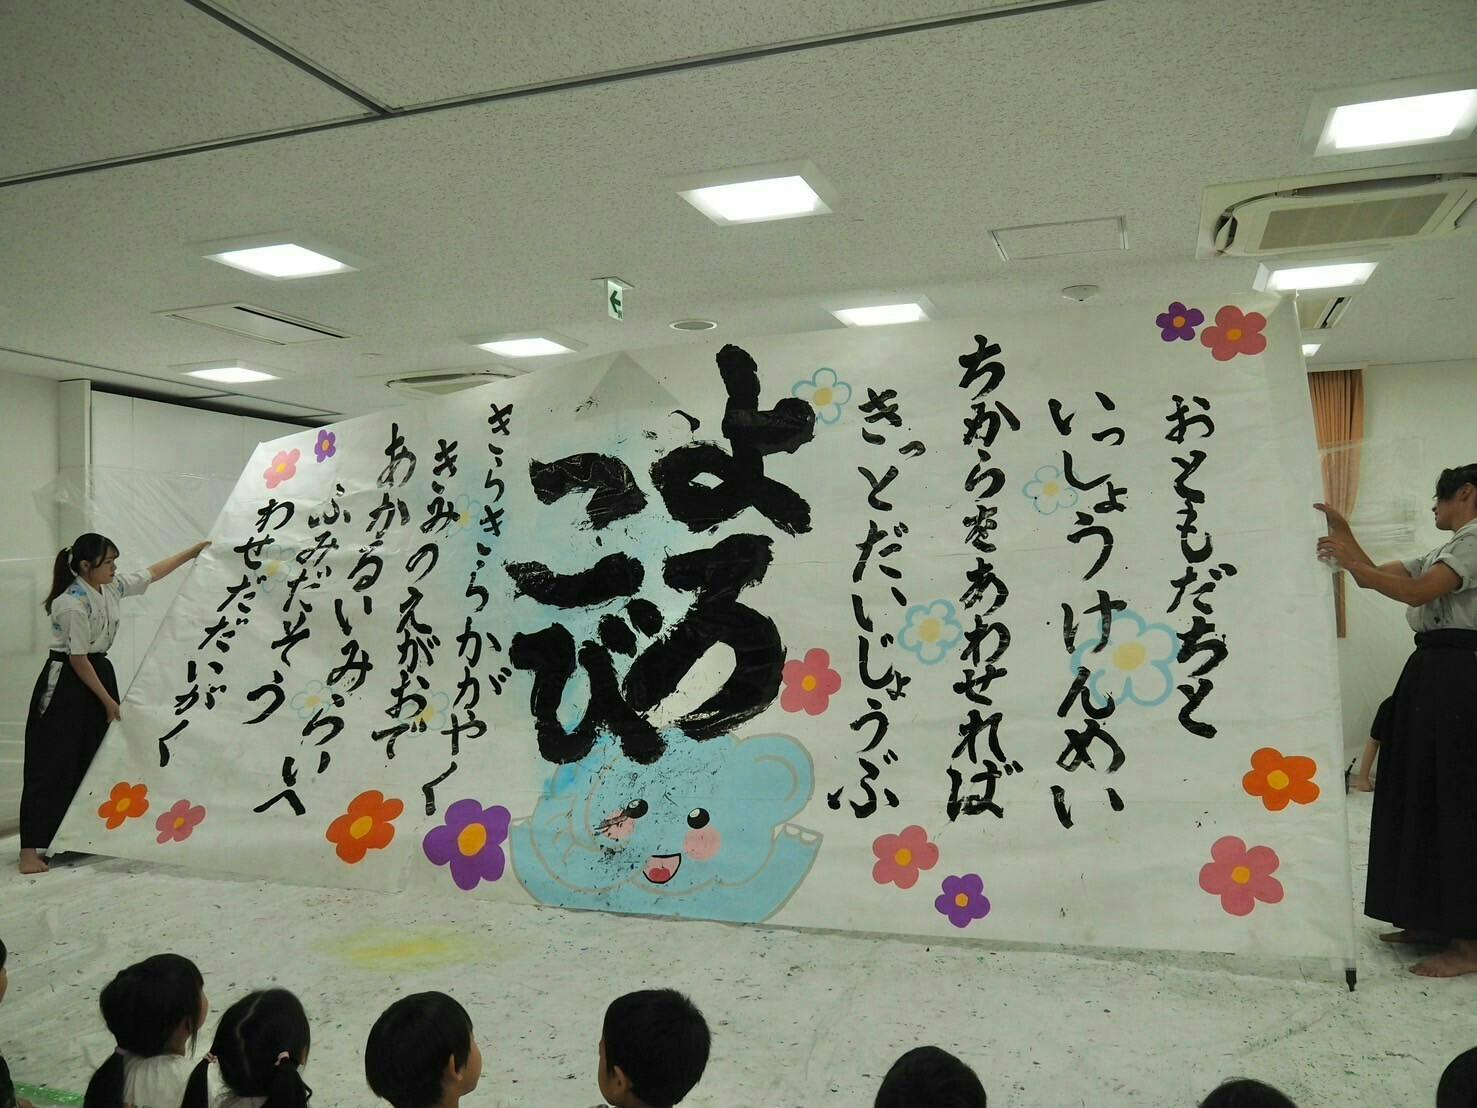 おともだちと
いっしょうけんめい
ちからをあわせれば
きっとだいじょうぶ
よろ
っこび
きらきらかがやく
きみのえがおで
あかるいみらいへ
ふみだそう
わせだだいがく